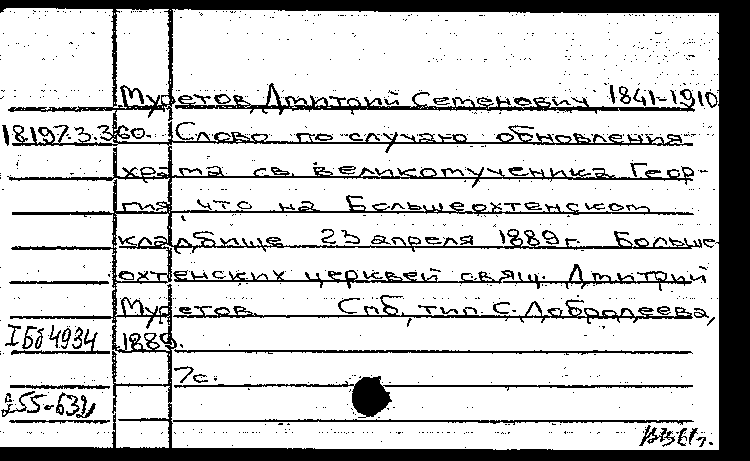 Муретов, Дмитрий Семенович, 1841-1910
18197.3.360. Слово по случаю обновления
храма св. великомученика Геор-
гия, что на Большеохтенском
кладбище 23 апреля 1889 г. Больше-
охтенских церквей свящ. Дмитрий
Муретов. Спб, тип. С. Добродеева,
I Бб 4934 1889.
7 с.
255-632